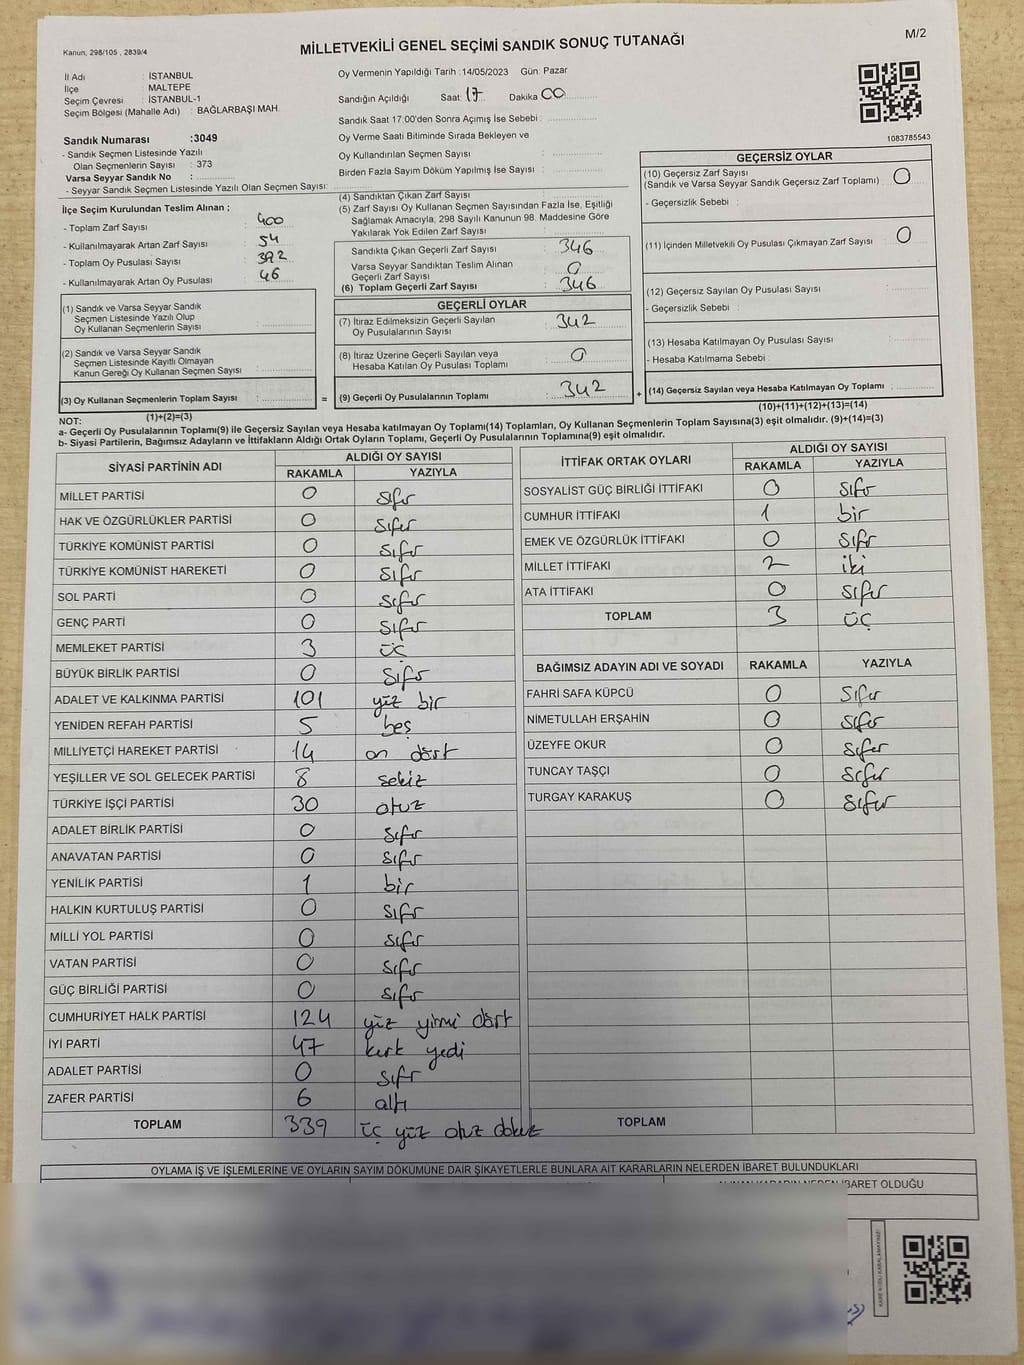 Kanun, 298/105 , 2839/4
MİLLETVEKİLİ GENEL SEÇİMİ SANDIK SONUÇ TUTANAĞI
M/2
İl Adı : İSTANBUL
İlçe : MALTEPE
Seçim Çevresi : İSTANBUL-1
Seçim Bölgesi (Mahalle Adı) : BAĞLARBAŞI MAH.
Oy Vermenin Yapıldığı Tarih : 14/05/2023 Gün: Pazar
Sandığın Açıldığı Saat: 17 Dakika 00
Sandık Saat 17:00'den Sonra Açımış İse Sebebi :
Oy Verme Saati Bitiminde Sırada Bekleyen ve
Oy Kullandırılan Seçmen Sayısı :
Birden Fazla Sayım Döküm Yapılmış İse Sayısı :
1083785543
Sandık Numarası :3049
- Sandık Seçmen Listesinde Yazılı
Olan Seçmenlerin Sayısı : 373
Varsa Seyyar Sandık No :
- Seyyar Sandık Seçmen Listesinde Yazılı Olan Seçmen Sayısı:
İlçe Seçim Kurulundan Teslim Alınan ;
- Toplam Zarf Sayısı : 400
- Kullanılmayarak Artan Zarf Sayısı : 54
- Toplam Oy Pusulası Sayısı : 392
- Kullanılmayarak Artan Oy Pusulası : 46
(1) Sandık ve Varsa Seyyar Sandık
Seçmen Listesinde Yazılı Olup
Oy Kullanan Seçmenlerin Sayısı :
(2) Sandık ve Varsa Seyyar Sandık
Seçmen Listesinde Kayıtlı Olmayan
Kanun Gereği Oy Kullanan Seçmen Sayısı :
(3) Oy Kullanan Seçmenlerin Toplam Sayısı : =
(1)+(2)=(3)
(4) Sandıktan Çıkan Zarf Sayısı :
(5) Zarf Sayısı Oy Kullanan Seçmen Sayısından Fazla İse, Eşitliği
Sağlamak Amacıyla, 298 Sayılı Kanunun 98. Maddesine Göre
Yakılarak Yok Edilen Zarf Sayısı :
Sandıkta Çıkan Geçerli Zarf Sayısı : 346
Varsa Seyyar Sandıktan Teslim Alınan
Geçerli Zarf Sayısı : 0
(6) Toplam Geçerli Zarf Sayısı : 346
GEÇERLİ OYLAR
(7) İtiraz Edilmeksizin Geçerli Sayılan
Oy Pusulalarının Sayısı : 342
(8) İtiraz Üzerine Geçerli Sayılan veya
Hesaba Katılan Oy Pusulası Toplamı : 0
(9) Geçerli Oy Pusulalarının Toplamı : 342 +
GEÇERSİZ OYLAR
(10) Geçersiz Zarf Sayısı
(Sandık ve Varsa Seyyar Sandık Geçersiz Zarf Toplamı) : 0
- Geçersizlik Sebebi :
(11) İçinden Milletvekili Oy Pusulası Çıkmayan Zarf Sayısı : 0
(12) Geçersiz Sayılan Oy Pusulası Sayısı :
- Geçersizlik Sebebi :
(13) Hesaba Katılmayan Oy Pusulası Sayısı :
- Hesaba Katılmama Sebebi :
(14) Geçersiz Sayılan veya Hesaba Katılmayan Oy Toplamı :
(10)+(11)+(12)+(13)=(14)
NOT:
a- Geçerli Oy Pusulalarının Toplamı(9) ile Geçersiz Sayılan veya Hesaba Katılmayan Oy Toplamı(14) Toplamları, Oy Kullanan Seçmenlerin Toplam Sayısına(3) eşit olmalıdır. (9)+(14)=(3)
b- Siyasi Partilerin, Bağımsız Adayların ve İttifakların Aldığı Ortak Oyların Toplamı, Geçerli Oy Pusulalarının Toplamına(9) eşit olmalıdır.
SİYASİ PARTİNİN ADI ALDIĞI OY SAYISI
RAKAMLA YAZIYLA
MİLLET PARTİSİ 0 sıfır
HAK VE ÖZGÜRLÜKLER PARTİSİ 0 sıfır
TÜRKİYE KOMÜNİST PARTİSİ 0 sıfır
TÜRKİYE KOMÜNİST HAREKETİ 0 sıfır
SOL PARTİ 0 sıfır
GENÇ PARTİ 0 sıfır
MEMLEKET PARTİSİ 3 üç
BÜYÜK BİRLİK PARTİSİ 0 sıfır
ADALET VE KALKINMA PARTİSİ 101 yüz bir
YENİDEN REFAH PARTİSİ 5 beş
MİLLİYETÇİ HAREKET PARTİSİ 14 on dört
YEŞİLLER VE SOL GELECEK PARTİSİ 8 sekiz
TÜRKİYE İŞÇİ PARTİSİ 30 otuz
ADALET BİRLİK PARTİSİ 0 sıfır
ANAVATAN PARTİSİ 0 sıfır
YENİLİK PARTİSİ 1 bir
HALKIN KURTULUŞ PARTİSİ 0 sıfır
MİLLİ YOL PARTİSİ 0 sıfır
VATAN PARTİSİ 0 sıfır
GÜÇ BİRLİĞİ PARTİSİ 0 sıfır
CUMHURİYET HALK PARTİSİ 124 yüz yirmi dört
İYİ PARTİ 47 kırk yedi
ADALET PARTİSİ 0 sıfır
ZAFER PARTİSİ 6 altı
TOPLAM 339 üç yüz otuz dokuz
İTTİFAK ORTAK OYLARI ALDIĞI OY SAYISI
RAKAMLA YAZIYLA
SOSYALİST GÜÇ BİRLİĞİ İTTİFAKI 0 sıfır
CUMHUR İTTİFAKI 1 bir
EMEK VE ÖZGÜRLÜK İTTİFAKI 0 sıfır
MİLLET İTTİFAKI 2 iki
ATA İTTİFAKI 0 sıfır
TOPLAM 3 üç
BAĞIMSIZ ADAYIN ADI VE SOYADI RAKAMLA YAZIYLA
FAHRİ SAFA KÜPCÜ 0 sıfır
NİMETULLAH ERŞAHİN 0 sıfır
ÜZEYFE OKUR 0 sıfır
TUNCAY TAŞÇI 0 sıfır
TURGAY KARAKUŞ 0 sıfır
TOPLAM
OYLAMA İŞ VE İŞLEMLERİNE VE OYLARIN SAYIM DÖKÜMÜNE DAİR ŞİKAYETLERLE BUNLARA AİT KARARLARIN NELERDEN İBARET BULUNDUKLARI
ALINAN KARARIN NEDEN İBARET OLDUĞU
KARE KODU KARALAMAYINIZ!